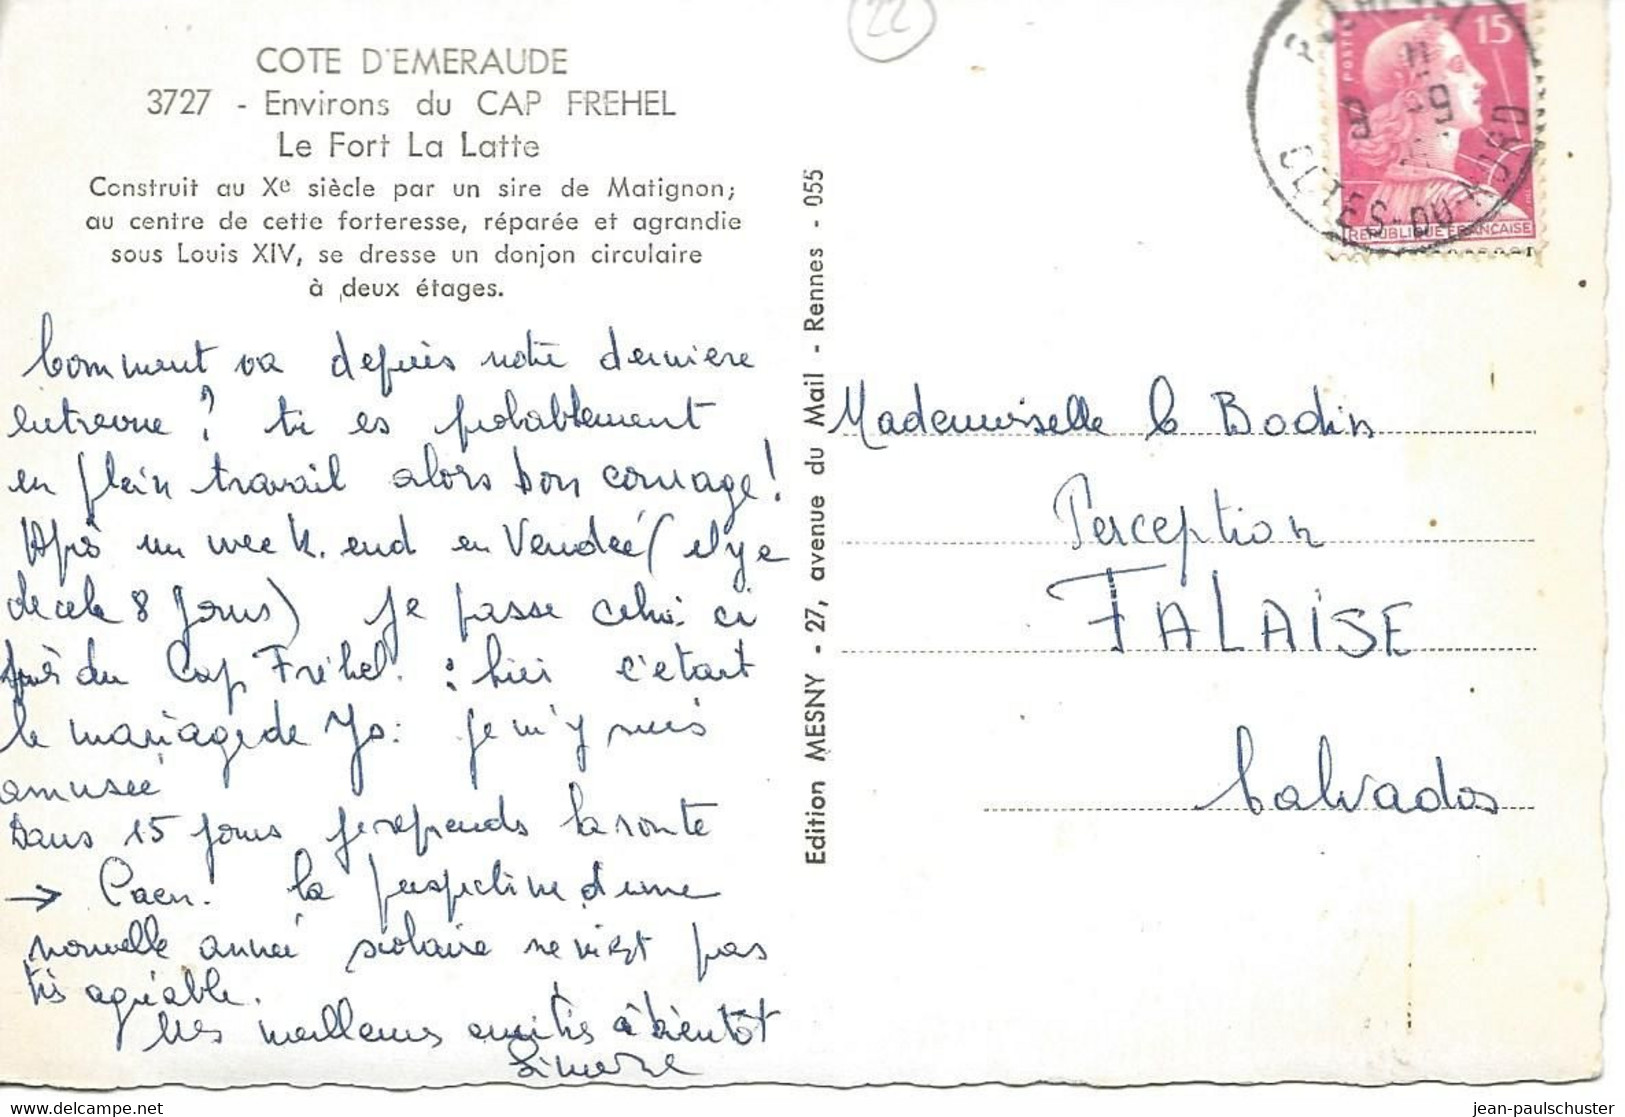 COTE D'EMERAUDE
3727 - Environs du CAP FREHEL
Le Fort La Latte
Construit au Xe siècle par un sire de Matignon;
au centre de cette forteresse, réparée et agrandie
sous Louis XIV, se dresse un donjon circulaire
à deux étages.
Comment va depuis notre dernière
entrevue? tu es probablement
en plein travail alors bon courage!
Après un week.end en Vendée (il y a
de cela 8 jours) je passe celui ci
près du Cap Fréhel. : hier c'était
le mariage de Yo: je m'y suis
amusée
Dans 15 jours je reprends la route
→ Caen. la perspective d'une
nouvelle année scolaire ne m'est pas
très agréable.
Mes meilleures amitiés à bientôt
Simone
Edition MESNY - 27, avenue du Mail - Rennes - 055
22
15
POSTES
REPUBLIQUE FRANÇAISE
COTES-DU-NORD
Mademoiselle le Bodin
Perception
FALAISE
Calvados
jean-paulschuster